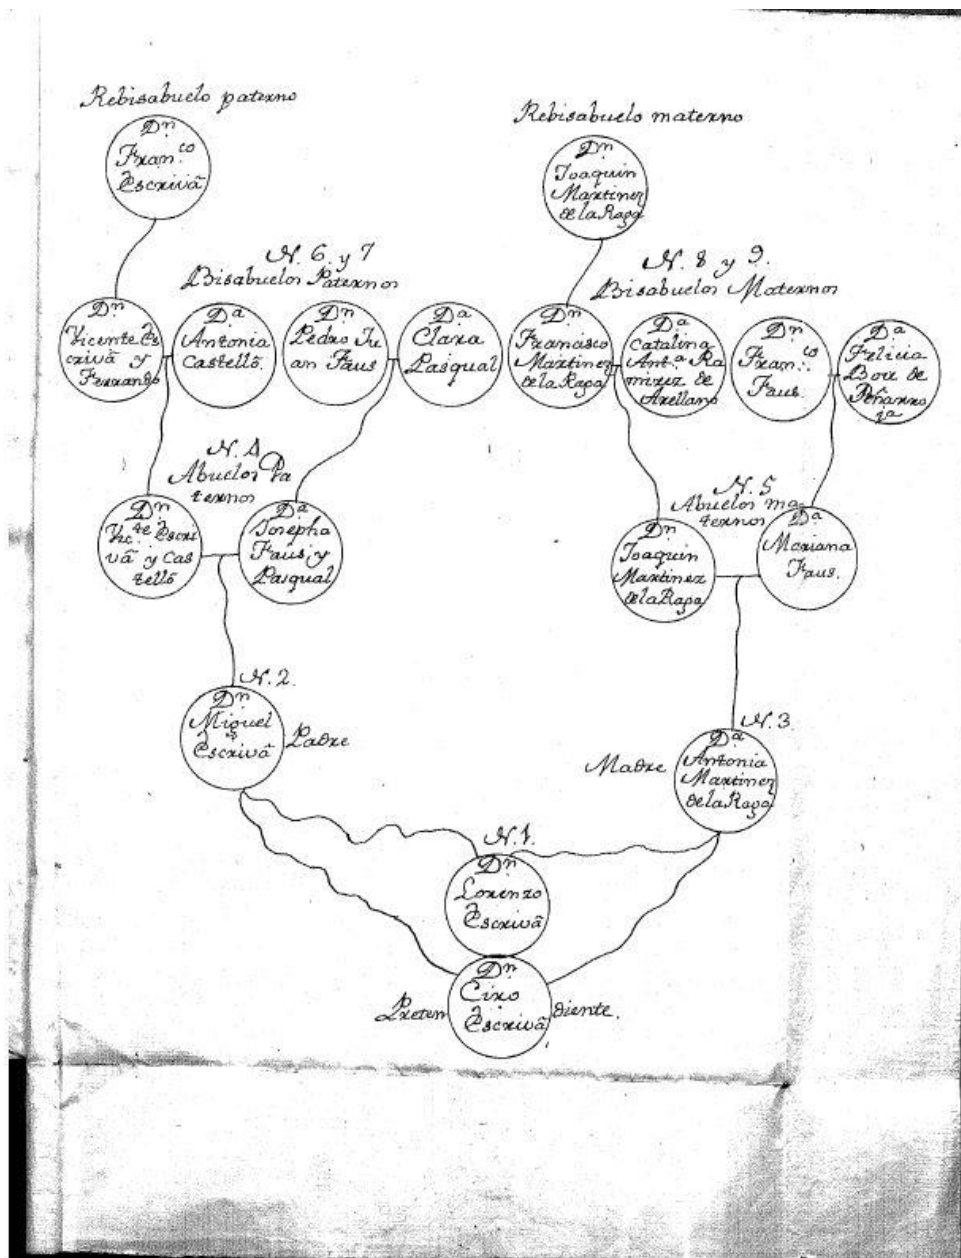 Rebisabuelo paterno
Dn
Fran.co
Escrivâ
Rebisabuelo materno
Dn
Joaquin
Martinez
de la Raga
N. 6. y 7
Bisabuelos Paternos
Dn
Vicente Es
crivâ y
Ferrando
Da
Antonia
Castellô.
Dn
Pedro Ju
an Faus
Da
Clara
Pasqual
N. 8 y 9.
Bisabuelos Maternos
Dn
Francisco
Martinez
de la Raga
Da
Catalina
Ant.a Ra
mirez de
Arellano
Dn
Fran.co
Faus.
Da
Felicia
Boix de
Peñarro
ja
N. 4
Abuelos Pa
ternos
Dn
Vic.te Escri
vâ y Cas
tellô
Da
Josepha
Faus, y
Pasqual
N. 5
Abuelos ma-
ternos
Dn
Joaquin
Martinez
de la Raga
Da
Mariana
Faus.
N. 2.
Dn
Miguel
Escrivâ
Padre
N. 3
Madre
Da
Antonia
Martinez
de la Raga
N. 1.
Dn
Lorenzo
Escrivâ
Dn
Ciro
Escrivâ
Preten diente.